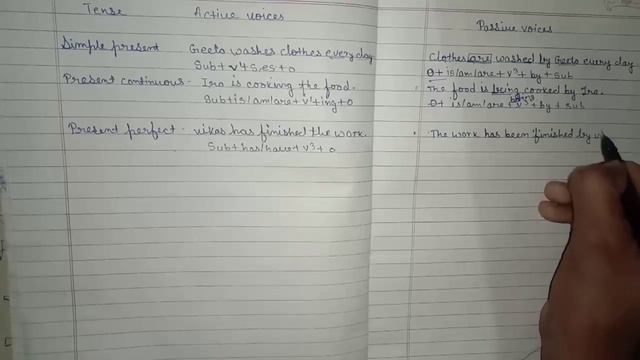 Tense Active voices
Simple present Geeta washes clothes every day
Sub + v¹ s, es + o
Present continuous - Ira is cooking the food.
Sub + is/am/are + v¹ + ing + o
Present perfect - vikas has finished the work.
Sub + has/have + v³ + o
Passive voices
Clothes are washed by Geeta every day
O + is/am/are + v³ + by + Sub
The food is being cooked by Ira.
O + is/am/are + being v³ + by + Sub
The work has been finished by